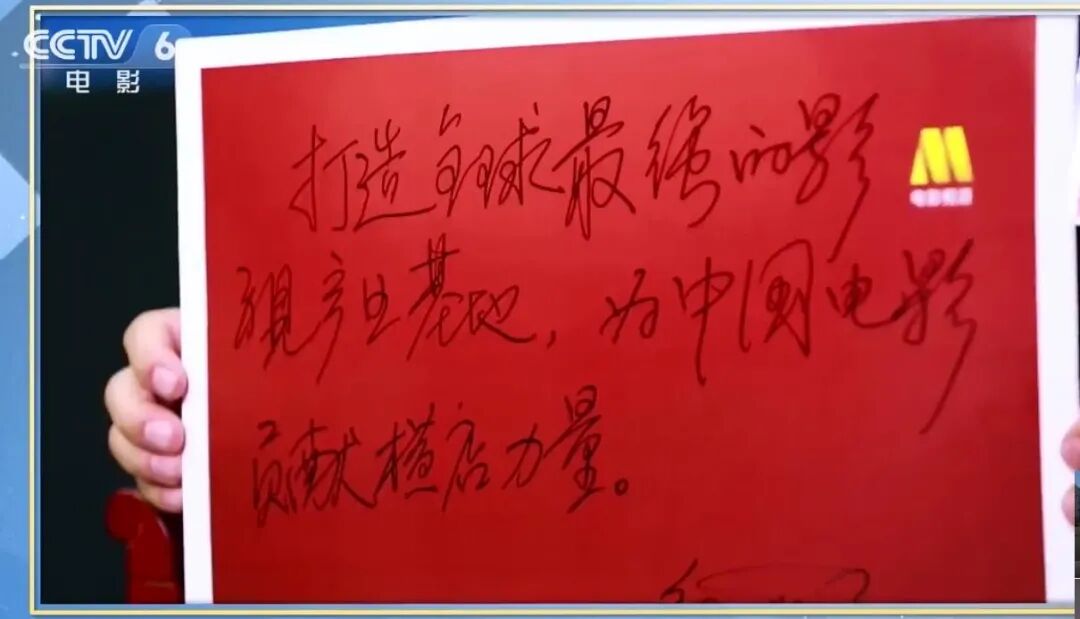 CCTV 6
电影
打造全球最强的影
电影频道
视产业基地，为中国电影
贡献横店力量。